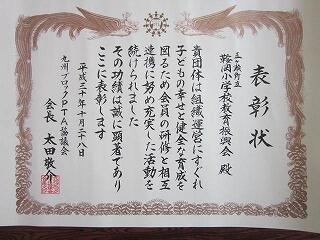 表彰状
五ヶ瀬町立
鞍岡小学校教育振興会 殿
貴団体は組織運営にすぐれ
子どもの幸せと健全な育成を
図るため会員の研修と相互
連携に努め充実した活動を
続けられました
その功績は誠に顕著であり
ここに表彰します
平成二十年十月二十八日
九州ブロックPTA協議会
会長 太田敬介